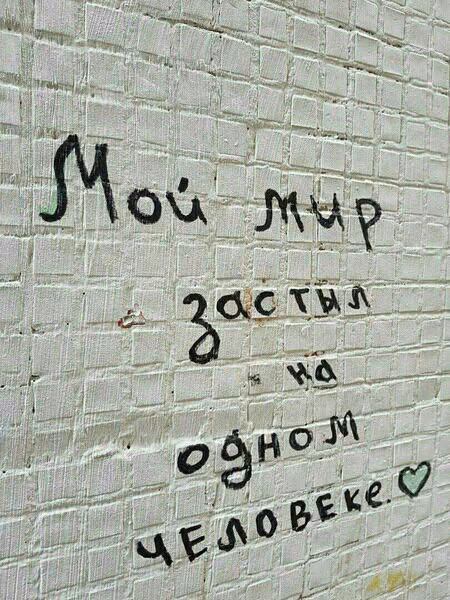 Мой мир
застыл
на
одном
человеке.♡